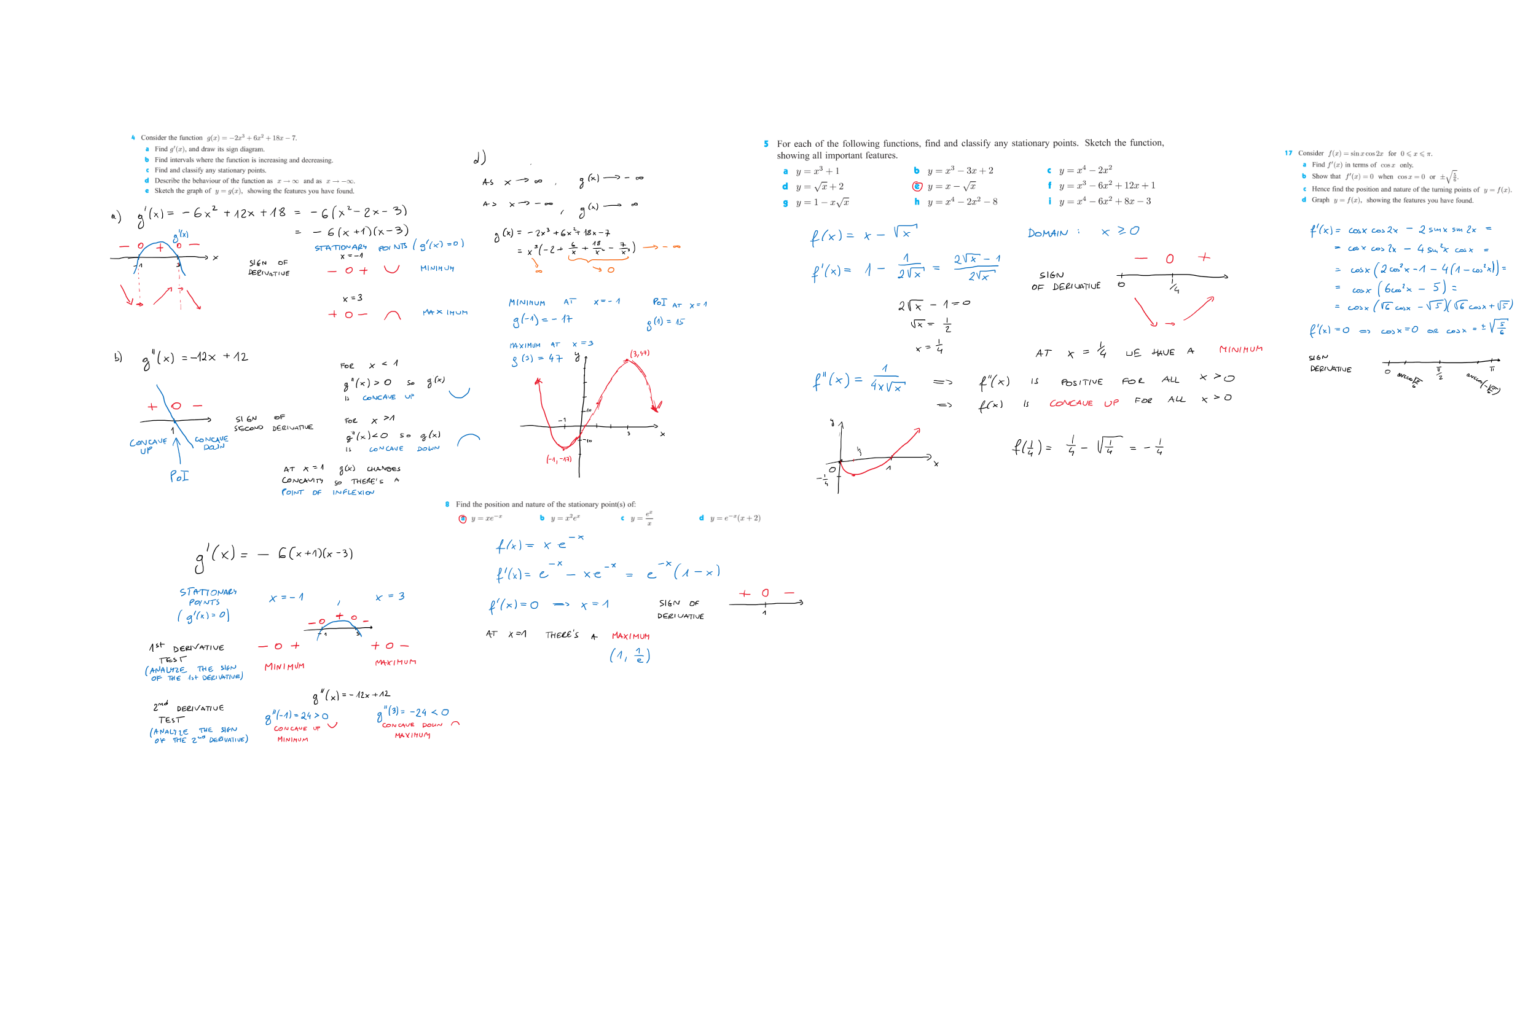 4 Consider the function g(x) = −2x³ + 6x² + 18x − 7.
a Find g′(x), and draw its sign diagram.
b Find intervals where the function is increasing and decreasing.
c Find and classify any stationary points.
d Describe the behaviour of the function as x → ∞ and as x → −∞.
e Sketch the graph of y = g(x), showing the features you have found.
a) g'(x) = −6x² + 12x + 18 = −6(x² − 2x − 3)
= −6(x+1)(x−3)
g'(x)
− 0 + 0 −
-1 3 x
SIGN OF
DERIVATIVE
STATIONARY POINTS (g'(x)=0)
x=-1
− 0 + MINIMUM
x=3
+ 0 − MAXIMUM
b) g''(x) = −12x + 12
+ 0 −
1
CONCAVE
UP
CONCAVE
DOWN
PoI
SIGN OF
SECOND DERIVATIVE
FOR x < 1
g''(x) > 0 so g(x)
IS CONCAVE UP
FOR x > 1
g''(x) < 0 so g(x)
IS CONCAVE DOWN
AT x=1 g(x) CHANGES
CONCAVITY SO THERE'S A
POINT OF INFLEXION
d)
AS x → ∞ , g(x) → −∞
AS x → −∞ , g(x) → ∞
g(x) = −2x³ + 6x² + 18x − 7
= x³(−2 + 6/x + 18/x² − 7/x³) → −∞
∞ → 0
MINIMUM AT x=-1
g(-1) = −17
PoI AT x=1
g(1) = 15
MAXIMUM AT x=3
g(3) = 47
y
(3,47)
10
-1
-10
3
x
(-1,-17)
g'(x) = −6(x+1)(x−3)
STATIONARY
POINTS
(g'(x)=0)
x=-1 , x=3
− 0 + 0 −
-1 3
1st DERIVATIVE
TEST
(ANALYZE THE SIGN
OF THE 1st DERIVATIVE)
− 0 +
MINIMUM
+ 0 −
MAXIMUM
g''(x) = −12x+12
2nd DERIVATIVE
TEST
(ANALYZE THE SIGN
OF THE 2nd DERIVATIVE)
g''(-1) = 24 > 0
CONCAVE UP
MINIMUM
g''(3) = −24 < 0
CONCAVE DOWN
MAXIMUM
8 Find the position and nature of the stationary point(s) of:
a y = xe⁻ˣ b y = x²eˣ c y = eˣ/x d y = e⁻ˣ(x + 2)
f(x) = x e⁻ˣ
f'(x) = e⁻ˣ − xe⁻ˣ = e⁻ˣ(1−x)
f'(x)=0 ⟹ x=1
SIGN OF
DERIVATIVE
+ 0 −
1
AT x=1 THERE'S A MAXIMUM
(1, 1/e)
5 For each of the following functions, find and classify any stationary points. Sketch the function,
showing all important features.
a y = x³ + 1 b y = x³ − 3x + 2 c y = x⁴ − 2x²
d y = √x + 2 e y = x − √x f y = x³ − 6x² + 12x + 1
g y = 1 − x√x h y = x⁴ − 2x² − 8 i y = x⁴ − 6x² + 8x − 3
f(x) = x − √x DOMAIN : x ≥ 0
f'(x) = 1 − 1/(2√x) = (2√x − 1)/(2√x)
2√x − 1 = 0
√x = 1/2
x = 1/4
SIGN
OF DERIVATIVE
− 0 +
0 1/4
AT x = 1/4 WE HAVE A MINIMUM
f''(x) = 1/(4x√x) ⟹ f''(x) IS POSITIVE FOR ALL x>0
⟹ f(x) IS CONCAVE UP FOR ALL x>0
y
1/4
0 1 x
−1/4
f(1/4) = 1/4 − √(1/4) = −1/4
17 Consider f(x) = sin x cos 2x for 0 ⩽ x ⩽ π.
a Find f′(x) in terms of cos x only.
b Show that f′(x) = 0 when cos x = 0 or ±√(5/6).
c Hence find the position and nature of the turning points of y = f(x).
d Graph y = f(x), showing the features you have found.
f'(x) = cosx cos2x − 2 sinx sin2x =
= cosx cos2x − 4 sin²x cosx =
= cosx (2cos²x − 1 − 4(1−cos²x)) =
= cosx (6cos²x − 5) =
= cosx (√6 cosx − √5)(√6 cosx + √5)
f'(x)=0 ⟹ cosx=0 OR cosx = ±√(5/6)
SIGN
DERIVATIVE
0 arccos√(5/6) π/2 arccos(−√(5/6)) π